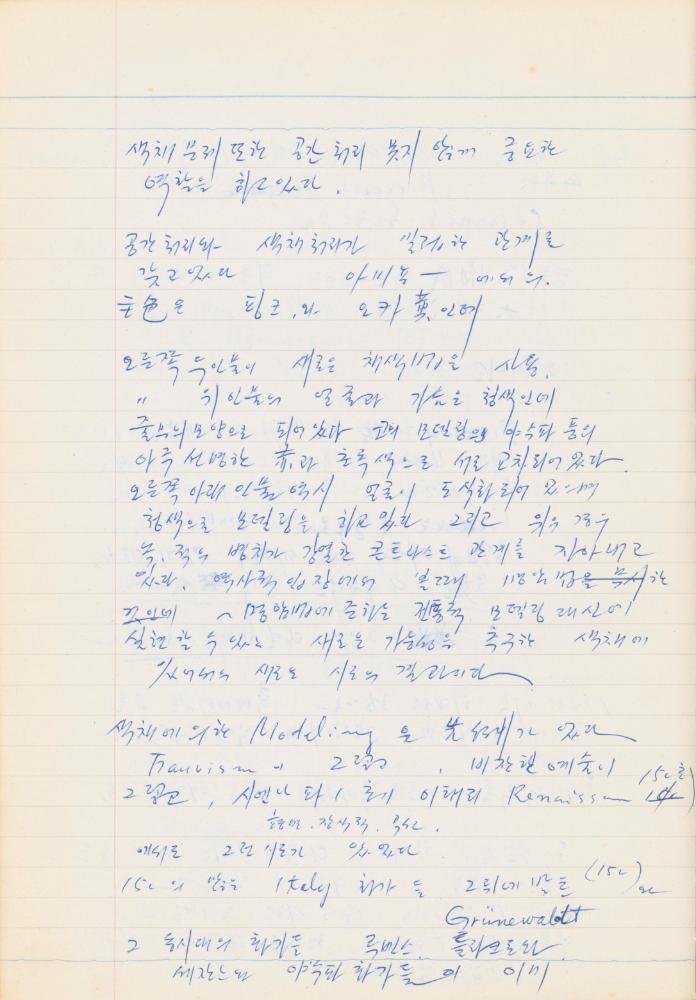 색채 문제 또한 공간 처리 못지 않게 중요한
역할을 하고 있다.
공간처리와 색채처리가 밀접한 관계를
갖고 있다 아비뇽 ー 에서의.
主色은 핑크, 와 오카 黃, 인데
오른쪽 두 인물이 새로운 채색법을 사용.
〃 위 인물의 얼굴과 가슴은 청색인데
줄무늬 모양으로 되어 있다 코의 모델링은 야수파 풍의
아주 선명한 赤과 초록색으로 서로 교차되어 있다.
오른쪽 아래 인물 역시 얼굴이 도식화되어 있으며
청색으로 모델링을 하고 있다 그리고 위의 경우
녹, 적의 병치가 강렬한 콘트라스트 관계를 자아내고
있다. 역사적 입장에서 볼 때 명암법을 무시한
것인데 명암법에 준하는 전통적 모델링 대신에
실현할 수 있는 새로운 가능성을 추구한 색채에
있어서의 새로운 시도의 결과이다
색채에 의한 Modeling 을 先例가 있다
Fauvism이 그렇고, 비잔틴 예술이
그렇고, 시엔나파, 초기 이태리 Renaissan 15c초)
평면. 장식적.
에서도 그런 시도가 있었다
15c의 많은 Italy 화가들 그뤼네발트 (15c) 와
Grünewaldt
그 동시대의 화가들 루벤스, 들라크로와,
세잔느와 야수파 화가들이 이미